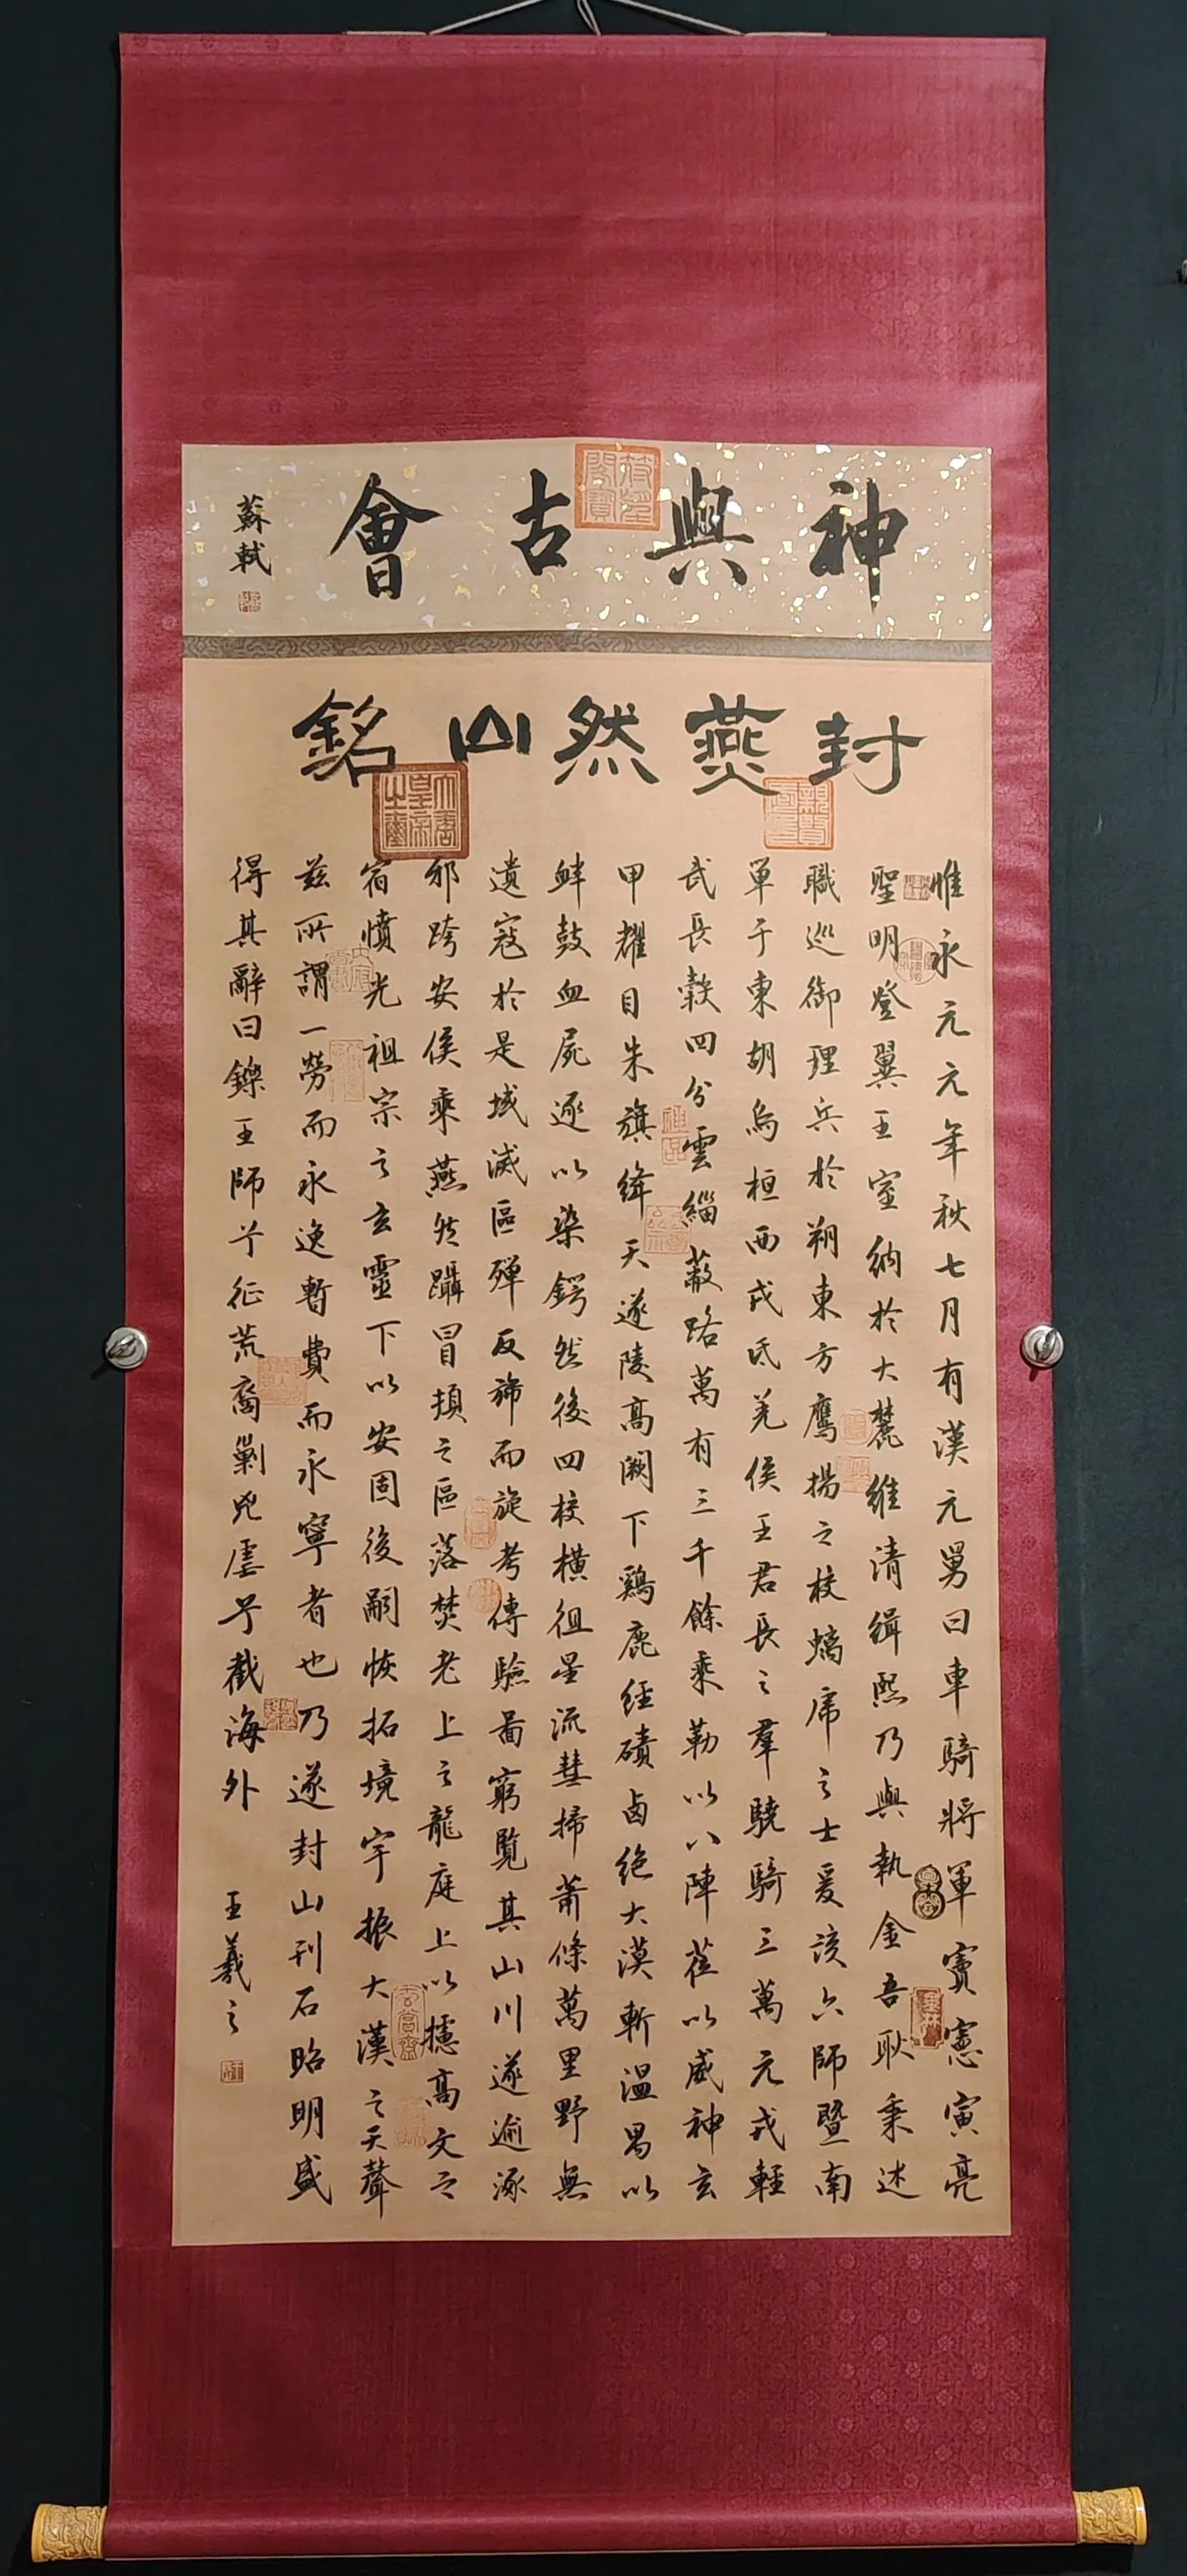 神與古會
蘇軾
封燕然山銘
惟永元元年秋七月有漢元舅曰車騎將軍竇憲寅亮
聖明登翼王室納於大麓維清緝熙乃與執金吾耿秉述
職巡御理兵於朔東方鷹揚之校螭虎之士爰該六師暨南
單于東胡烏桓西戎氐羌侯王君長之羣驍騎三萬元戎輕
武長轂四分雲輜蔽路萬有三千餘乘勒以八陣莅以威神玄
甲耀日朱旗絳天遂陵高闕下鷄鹿經磧鹵絶大漠斬溫禺以
釁鼓血屍逐以染鍔然後四校橫徂星流彗掃蕭條萬里野無
遺寇於是域滅區殫反旆而旋考傳驗圖窮覽其山川遂逾涿
邪跨安侯乘燕然躡冒頓之區落焚老上之龍庭上以攄高文之
宿憤光祖宗之玄靈下以安固後嗣恢拓境宇振大漢之天聲
茲所謂一勞而永逸暫費而永寧者也乃遂封山刊石昭明盛
得其辭曰鑠王師兮征荒裔剿兇虐兮截海外
王羲之